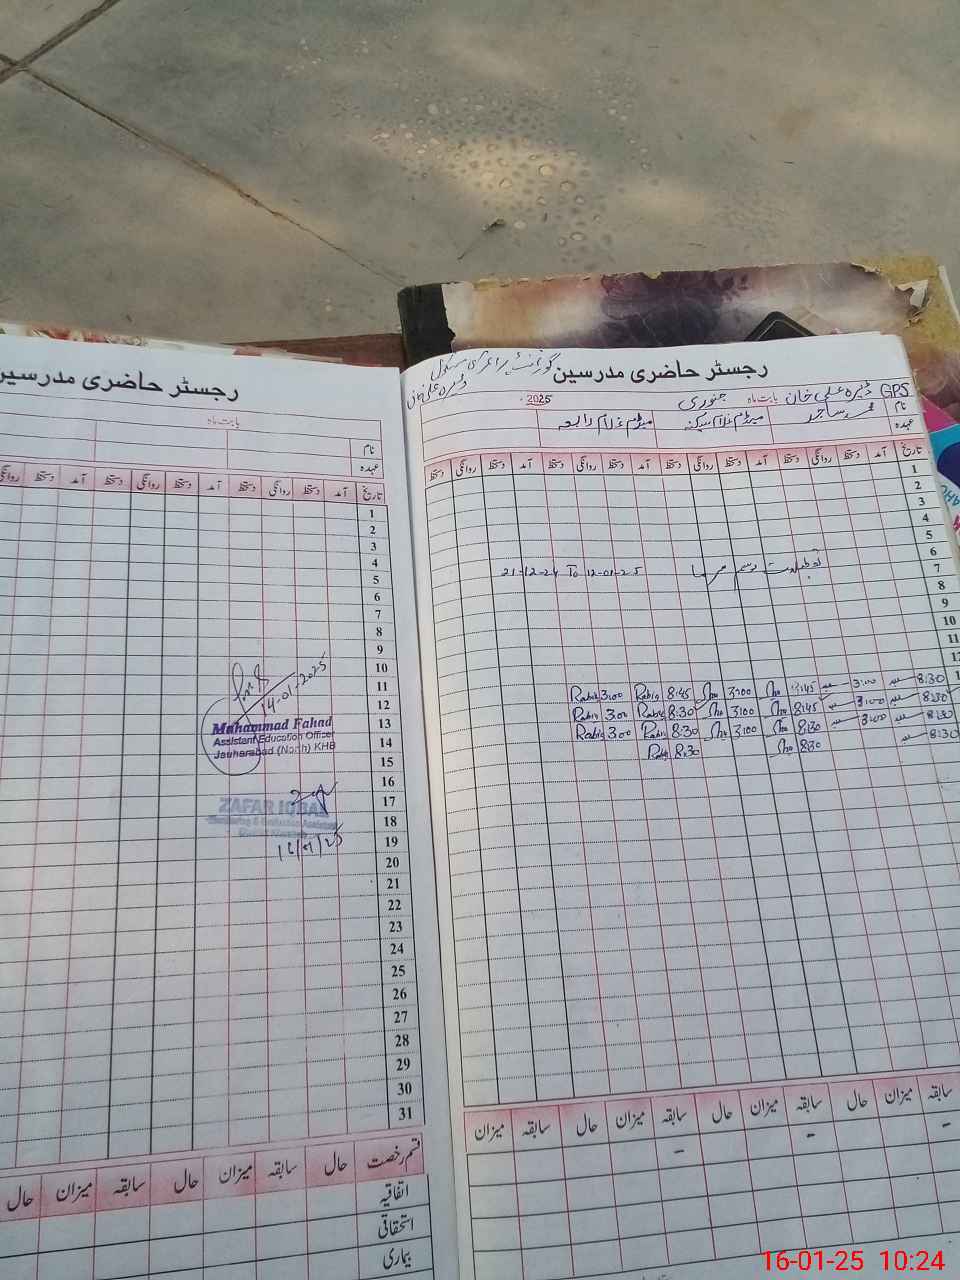 رجسٹر حاضری مدرسین
بابت ماہ
نام
عہدہ
تاریخ آمد دستخط روانگی دستخط آمد دستخط روانگی دستخط آمد دستخط روانگی
1
2
3
4
5
6
7
8
9
10
11
12
13
14
15
16
17
18
19
20
21
22
23
24
25
26
27
28
29
30
31
14-01-2025
Muhammad Fahad
Assistant Education Officer
Jauharabad (North) KHB
ZAFAR IQBAL
16/01/25
قسم رخصت حال سابقہ میزان حال سابقہ میزان حال
اتفاقیہ
استحقاقی
بیماری
گورنمنٹ پرائمری سکول
ڈیرہ علی خان
رجسٹر حاضری مدرسین
GPS ڈیرہ علی خان بابت ماہ جنوری 2025
نام محمد ساجد میڈم غلام سکینہ میڈم غلام رابعہ
عہدہ
تاریخ آمد دستخط روانگی دستخط آمد دستخط روانگی دستخط آمد دستخط روانگی دستخط آمد دستخط روانگی دستخط
1
2
3
4
5
6
7
تعطیلات موسم سرما 21-12-24 To 12-01-25
8
9
10
11
12
8:30 3:00 8:45 3:00 8:45 Rabia 3:00 Rabia
8:30 3:00 8:45 3:00 8:30 Rabia 3:00 Rabia
8:30 3:00 8:30 3:00 8:30 Rabia 3:00 Rabia
8:30 8:30 8:30 Rabia
سابقہ میزان حال سابقہ میزان حال سابقہ میزان حال سابقہ میزان
- - -
16-01-25 10:24